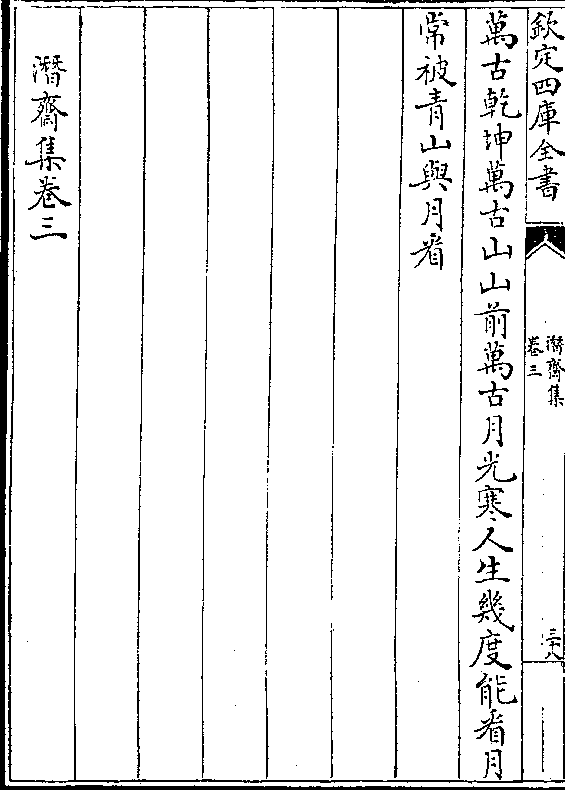 欽定四庫全書
潛齋集
卷三
三十八
萬古乾坤萬古山山前萬古月光寒人生幾度能看月
常被青山與月看
潛齋集卷三